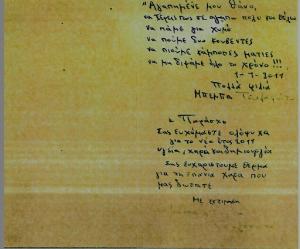 "Αγαπημένε μου Θάνο,
να ξέρεις πως σε αγαπώ πολύ και θέλω
να πάμε για χυμό
να πούμε δυο κουβέντες
να πιούμε κάμποσες ματιές
να μη διψάμε όλο το χρόνο!!!
1-1-2011
Πολλά φιλιά
Μπέμπα
κ Παράσχο
Σας ευχόμαστε ολόψυχα
για το νέο έτος 2011
υγεία, χαρά και δημιουργία
Σας ευχαριστούμε θερμά
για τη σπάνια χαρά που
μας δώσατε
Με εκτίμηση